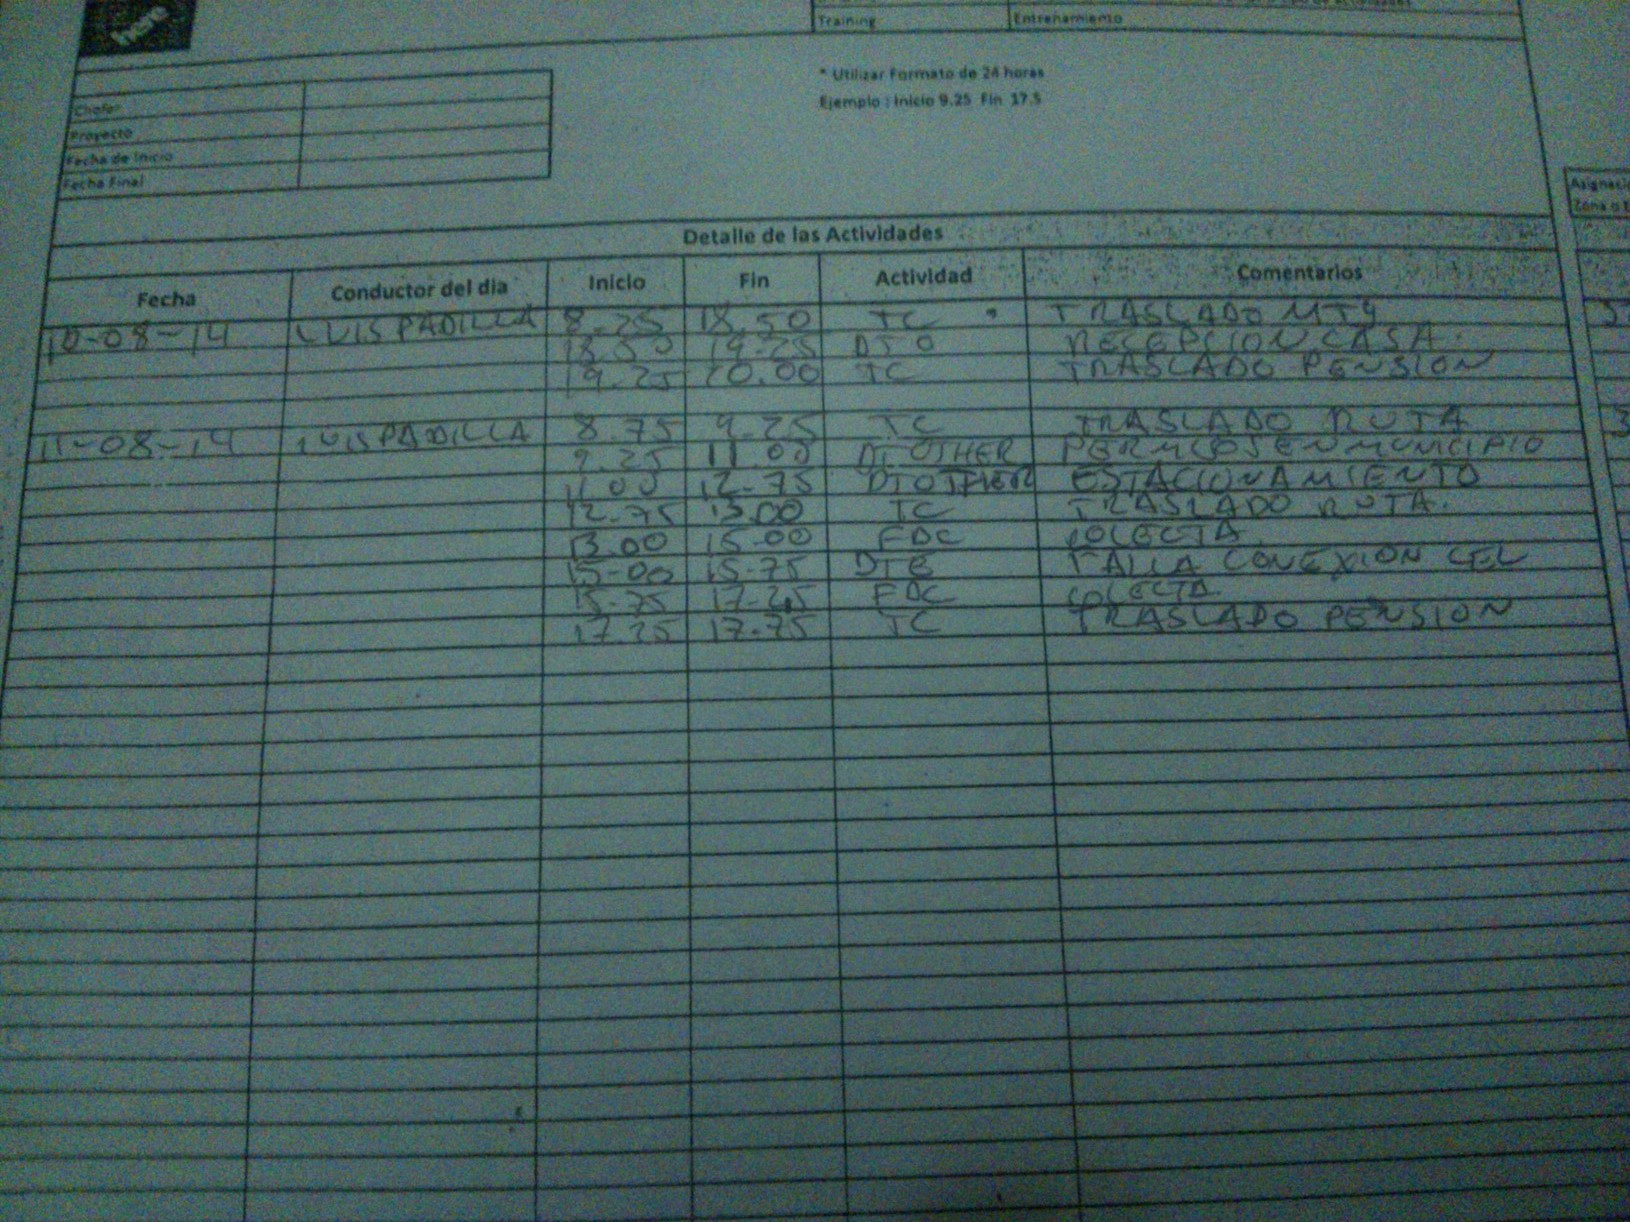 here
Training Entrenamiento
* Utilizar Formato de 24 horas
Ejemplo : Inicio 9.25 Fin 17.5
Chofer
Proyecto
Fecha de Inicio
Fecha Final
Zona o
Detalle de las Actividades
Fecha Conductor del dia Inicio Fin Actividad Comentarios
10-08-14 LUIS PADILLA 8.25 18.50 TC TRASLADO MTY
18.50 19.25 DTO RECEPCION CASA.
19.25 20.00 TC TRASLADO PENSION
11-08-14 LUIS PADILLA 8.75 9.25 TC TRASLADO RUTA
9.25 11.00 DTOTHER PERMISOS EN MUNICIPIO
11.00 12.75 DTOTHER ESTACIONAMIENTO
12.75 13.00 TC TRASLADO RUTA.
13.00 15.00 FDC COLECTA
15-00 15-75 FALLA CONEXION CEL
15-75 17-25 FDC COLECTA
17.25 17.75 TC TRASLADO PENSION